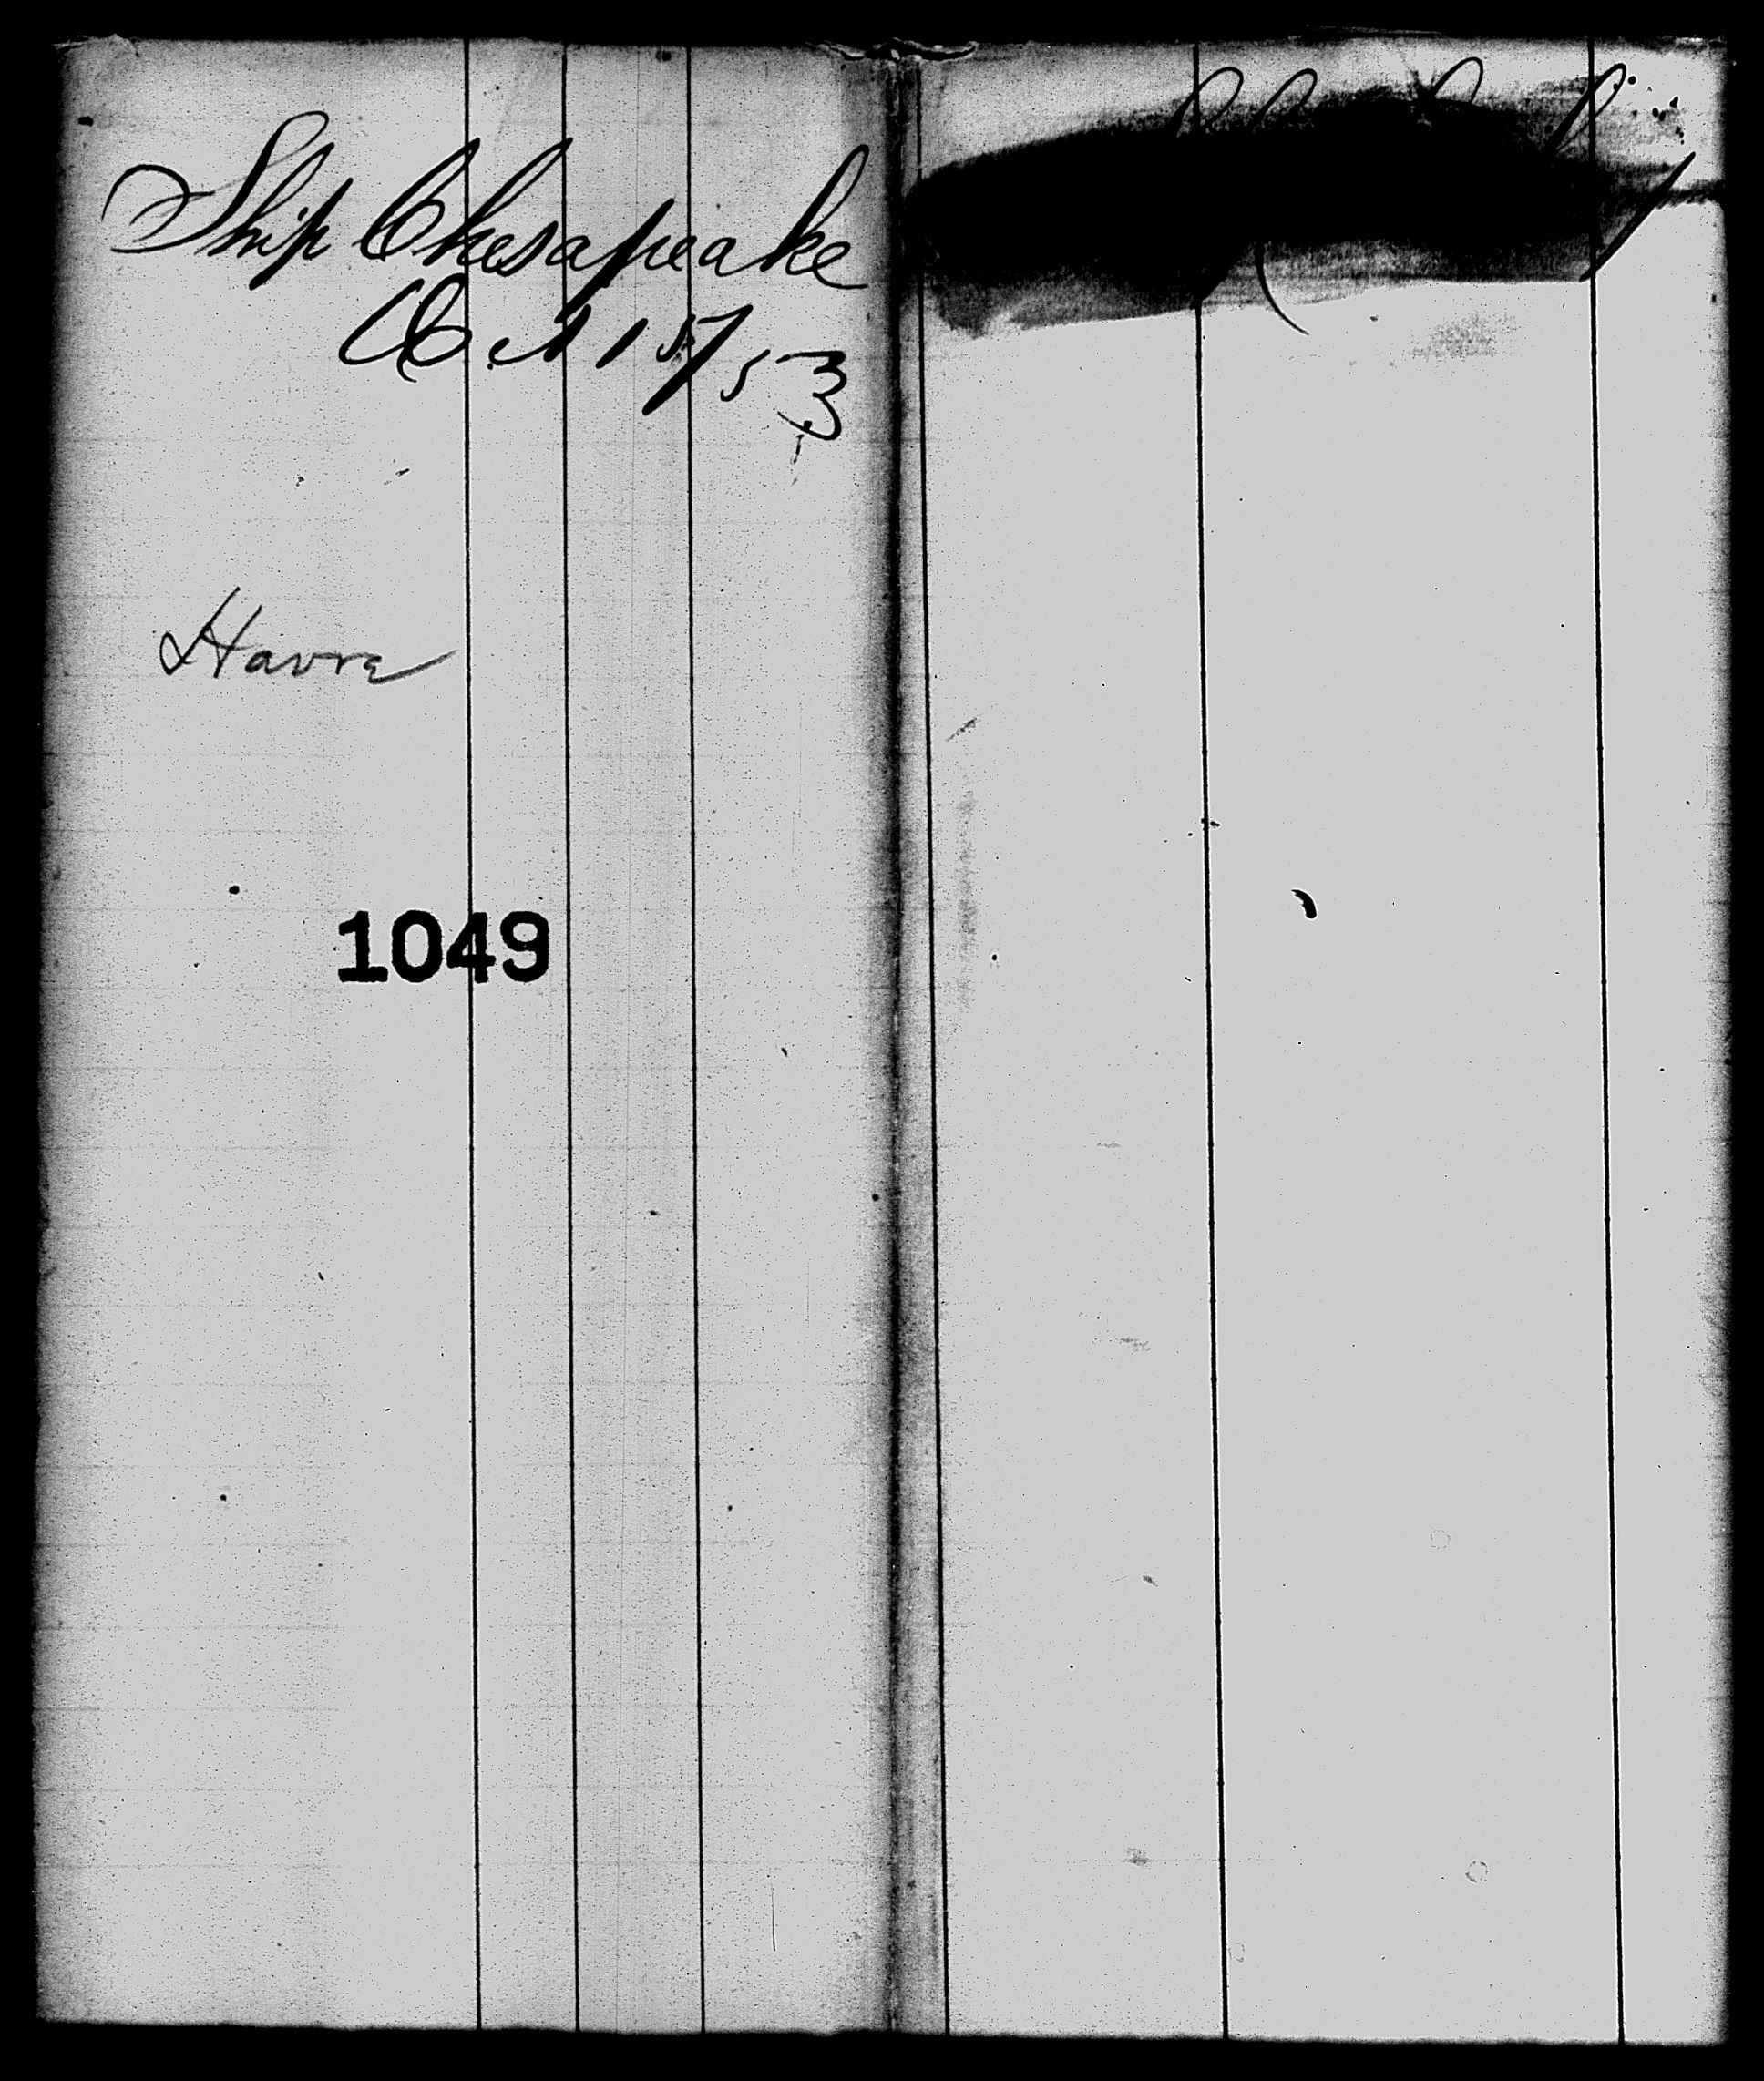 Ship Chesapeake
Oct 15/53
Havre
1049